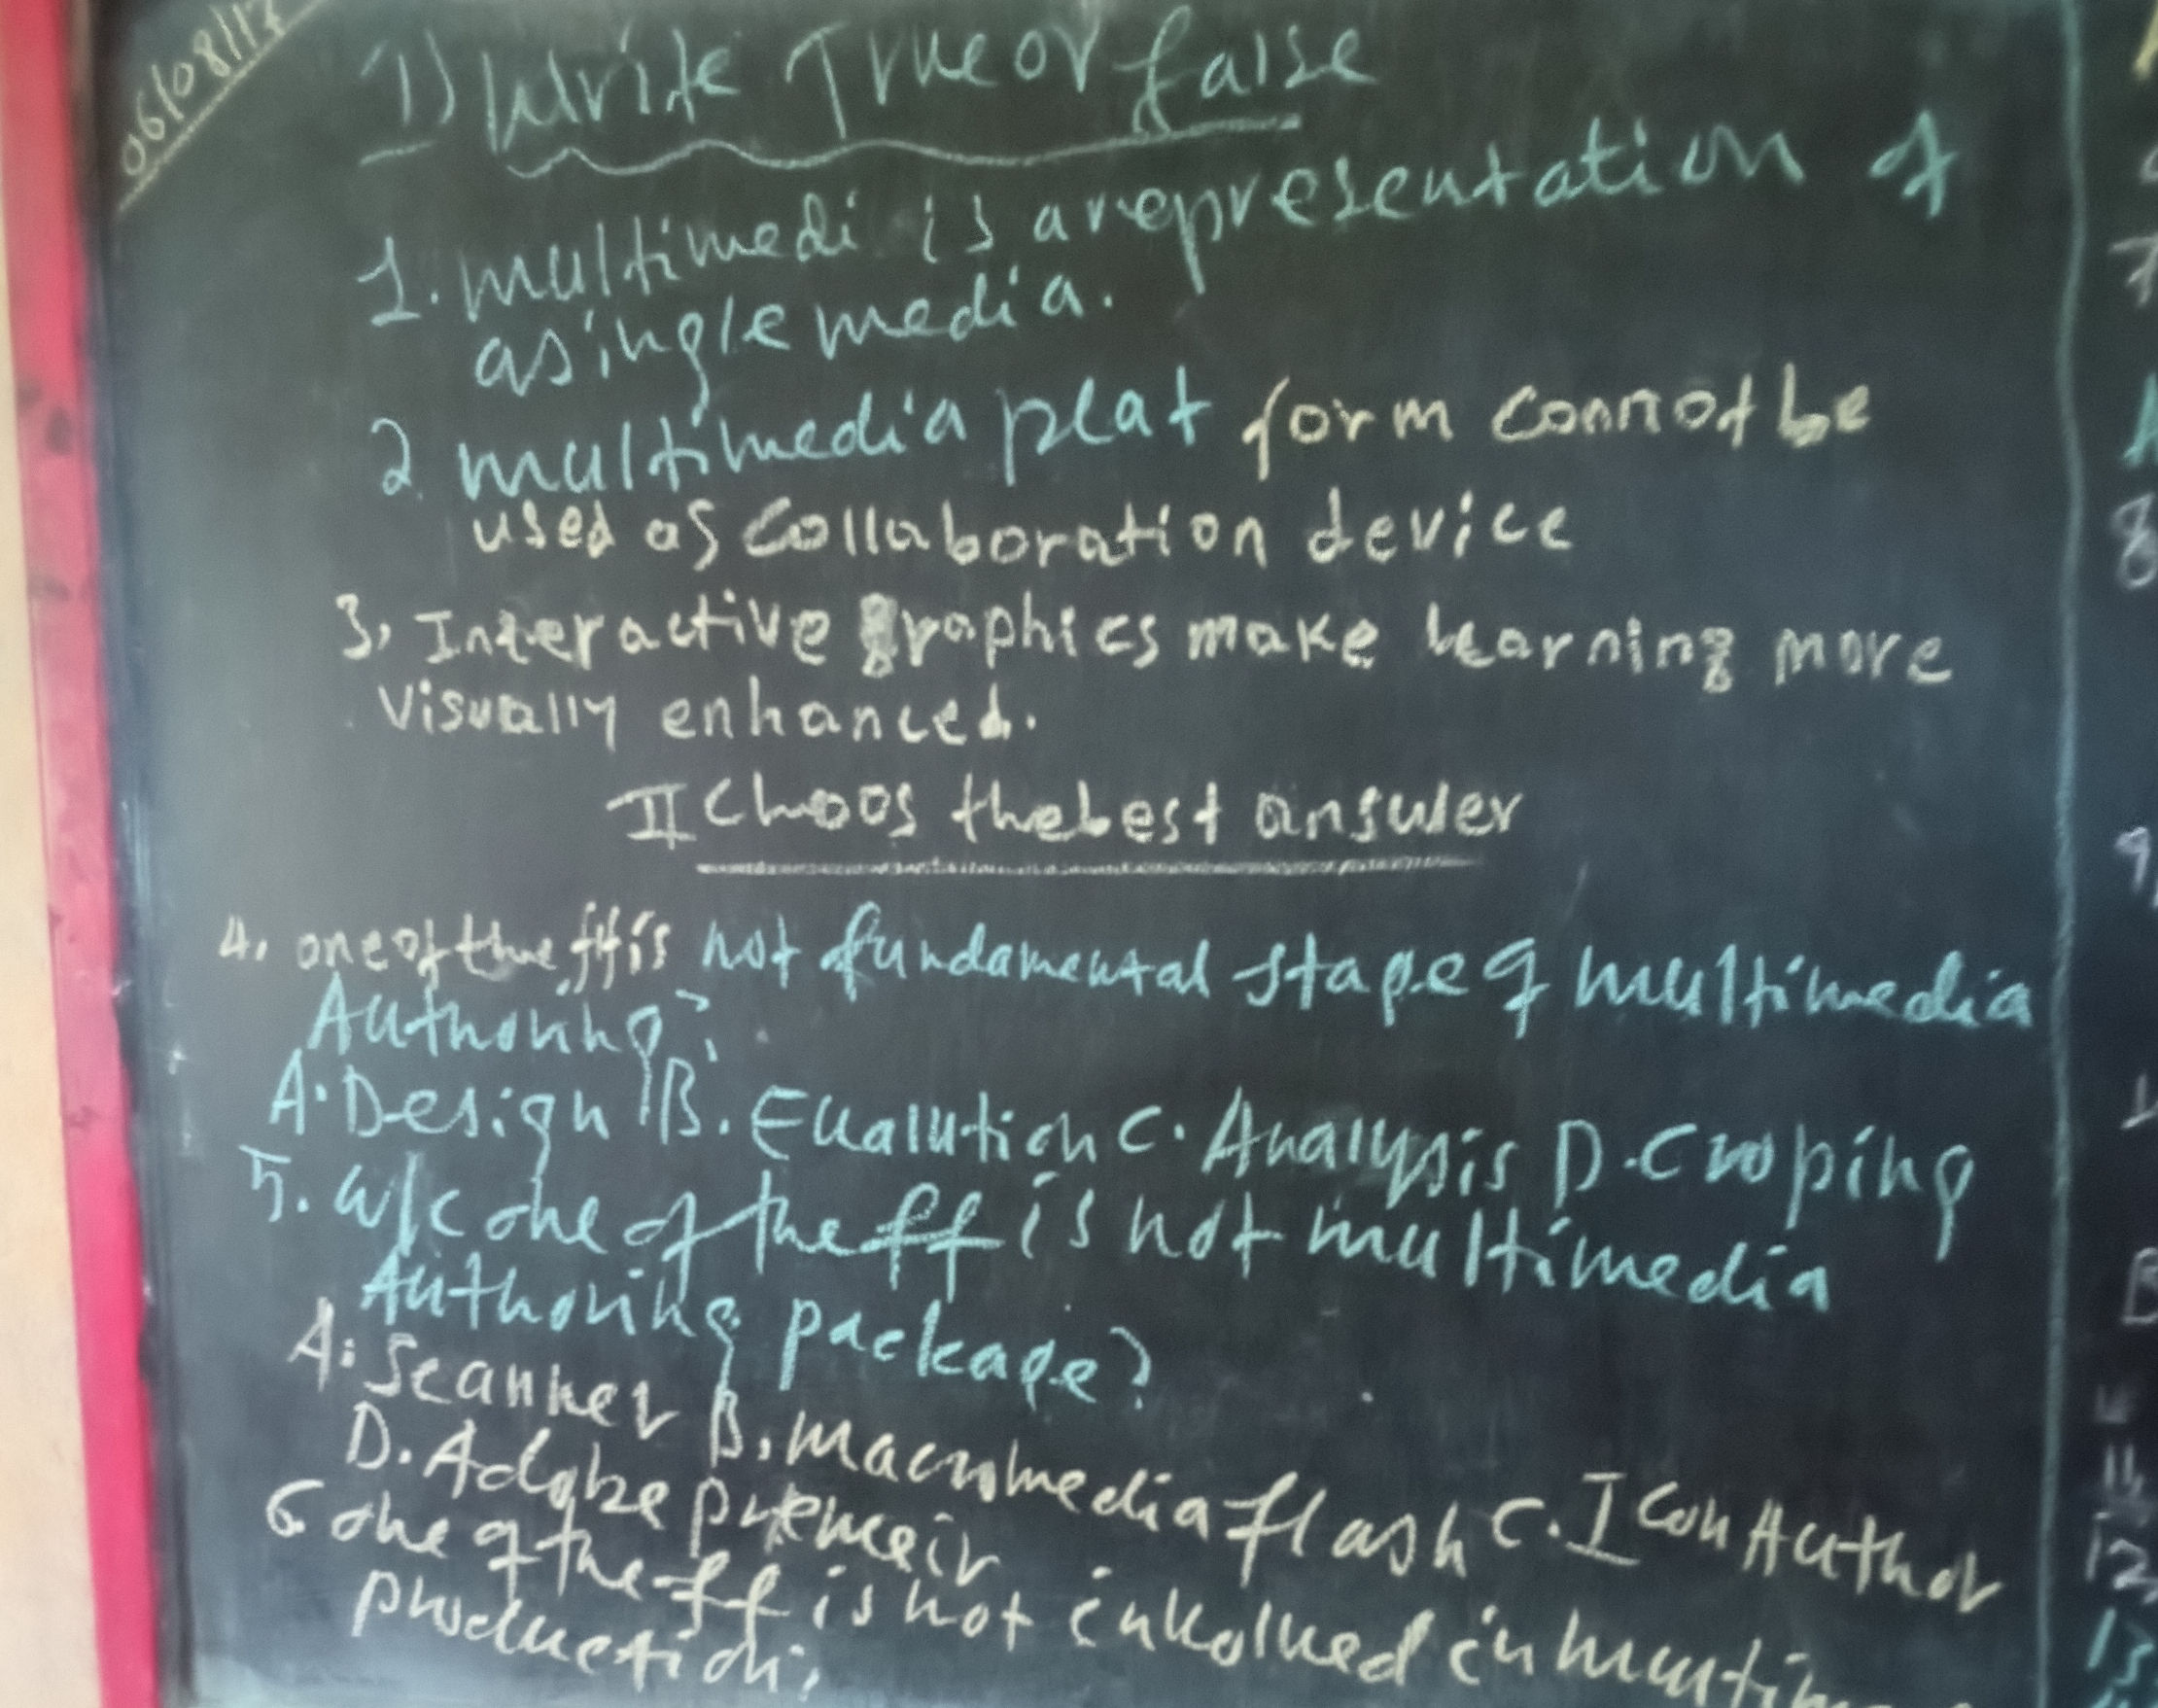 06/08/17
1) Write True or false
1. multimedi is a representation of
a single media.
2. multimedia plat form connot be
used as collaboration device
3, Interactive graphics make learning more
visually enhanced.
II Choos the best answer
4. one of the ff is not fundamental stage of multimedia
Authoring?
A. Design B. Evalution C. Analysis D. Croping
5. w/c one of the ff is not multimedia
Authoring package?
A. Scanner B. macromedia flash C. Icon Author
D. Adobe
6 one of the ff is not in
production,
7
8
9
12
13